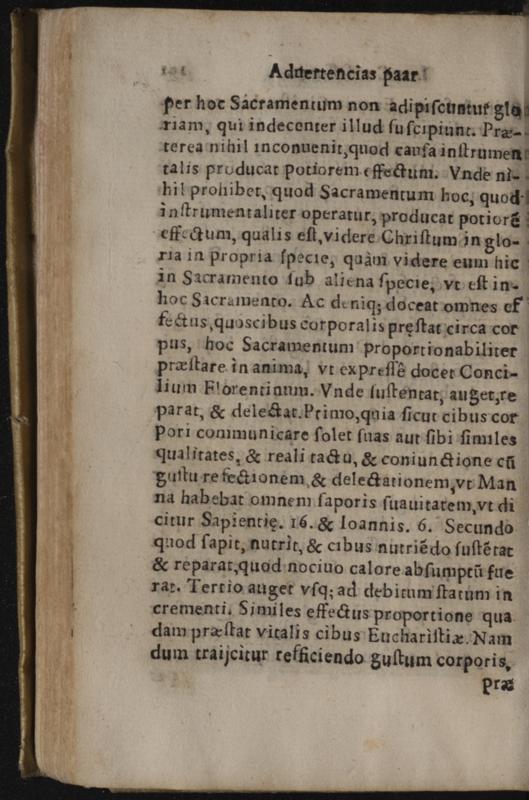 Aduertencias paar
per hoc Sacramentum non adipiscuntur glo
riam, qui indecenter illud suscipiunt. Præ-
terea nihil inconuenit, quod causa instrumen
talis producat potiorem effectum. Vnde ni-
hil prohibet, quod Sacramentum hoc, quod
instrumentaliter operatur, producat potiorē
effectum, qualis est, videre Christum in glo-
ria in propria specie, quàm videre eum hic
in Sacramento sub aliena specie, vt est in-
hoc Sacramento. Ac deniq; doceat omnes ef
fectus, quos cibus corporalis pręstat circa cor
pus, hoc Sacramentum proportionabiliter
præstare in anima, vt expressê docet Conci-
lium Florentinum. Vnde sustentat, auget, re
parat, & delectat. Primo, quia sicut cibus cor
pori communicare solet suas aut sibi similes
qualitates, & reali tactu, & coniunctione cū
gustu refectionem & delectationem, vt Man
na habebat omnem saporis suauitatem, vt di
citur Sapientię. 16. & Ioannis. 6. Secundo
quod sapit, nutrit, & cibus nutriēdo sustētat
& reparat, quod nociuo calore absumptū fue
rat. Tertio auget vsq; ad debitum statum in
crementi. Similes effectus proportione qua
dam præstat vitalis cibus Eucharistiæ. Nam
dum traijcitur refficiendo gustum corporis,
præ